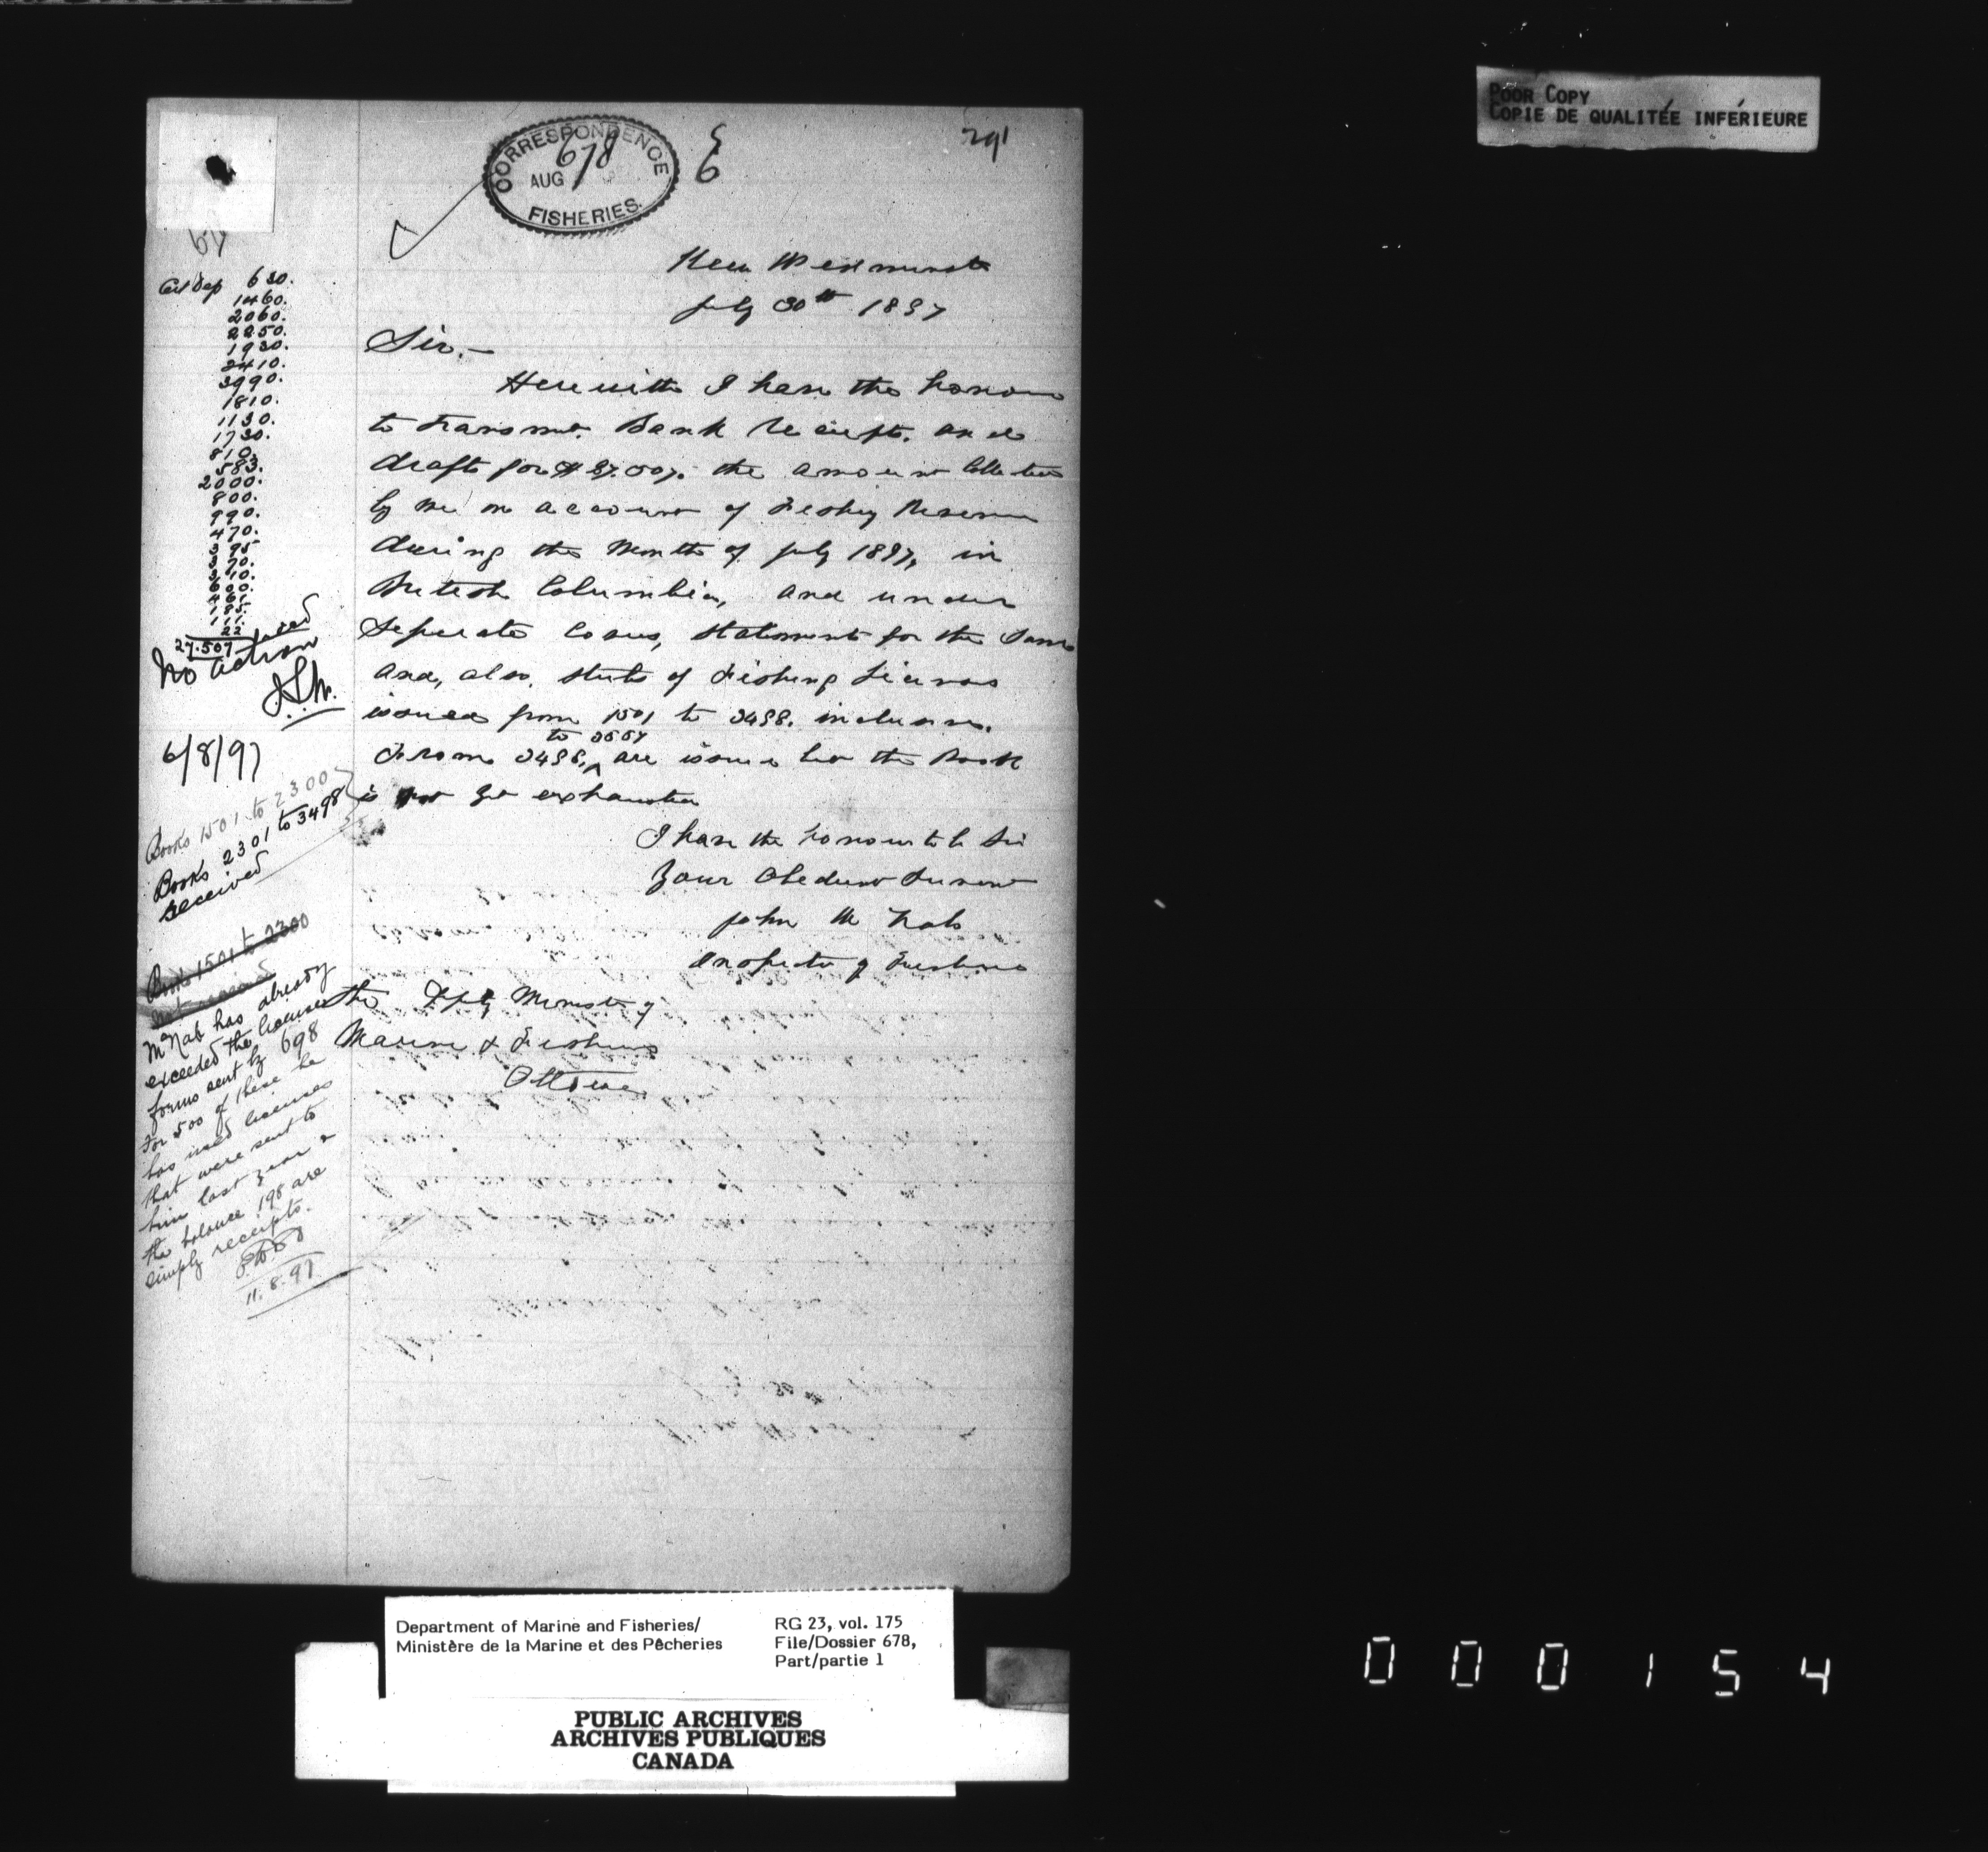 POOR COPY
COPIE DE QUALITÉE INFÉRIEURE
CORRESPONDENCE
678
AUG
FISHERIES.
6
291
New Westminster
July 30th 1897
Sir,—
Herewith I have the honour
to transmit Bank Receipts and
drafts for $27.507. the amount Collected
by me on account of Fishery Revenue
during the Month of July 1897, in
British Columbia, and under
Seperate Cover, statements for the Same
and, also, stubs of Fishing Licenses
issued from 1501 to 3498. inclusive.
to 3557
From 3498, ^ are issued but the Book
is not yet exhausted
I have the honour to be Sir
Your Obedient Servant
John McNab
Inspector of Fisheries
The Dpty Minister of
Marine & Fisheries
Ottawa
630.
1460.
2060.
2250.
1930.
2410.
3990.
1810.
1130.
1730.
810.
583.
2000.
800.
990.
470.
395
370.
310.
600.
461.
185.
111.
22
27.507
No action
6/8/97
Books 1501 to 2300
Books 2301 to 3498
received
Books 1501 to 2300
not received
McNab has already
exceeded the license
forms sent by 698
For 500 of these he
has used licenses
that were sent to
him last year &
the balance 198 are
simply receipts.
11.8.97
Department of Marine and Fisheries/
Ministère de la Marine et des Pêcheries
RG 23, vol. 175
File/Dossier 678,
Part/partie 1
PUBLIC ARCHIVES
ARCHIVES PUBLIQUES
CANADA
000154